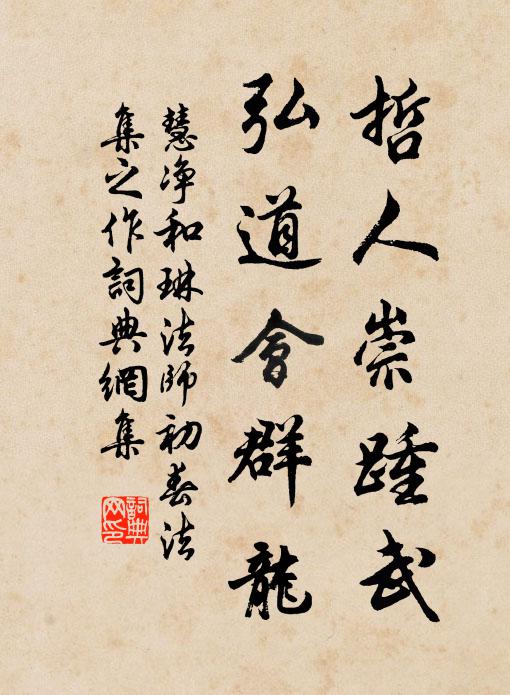 哲人崇踵武
弘道會群龍
慧净和琳法師初春法
集之作詞典網集
詞典
网印